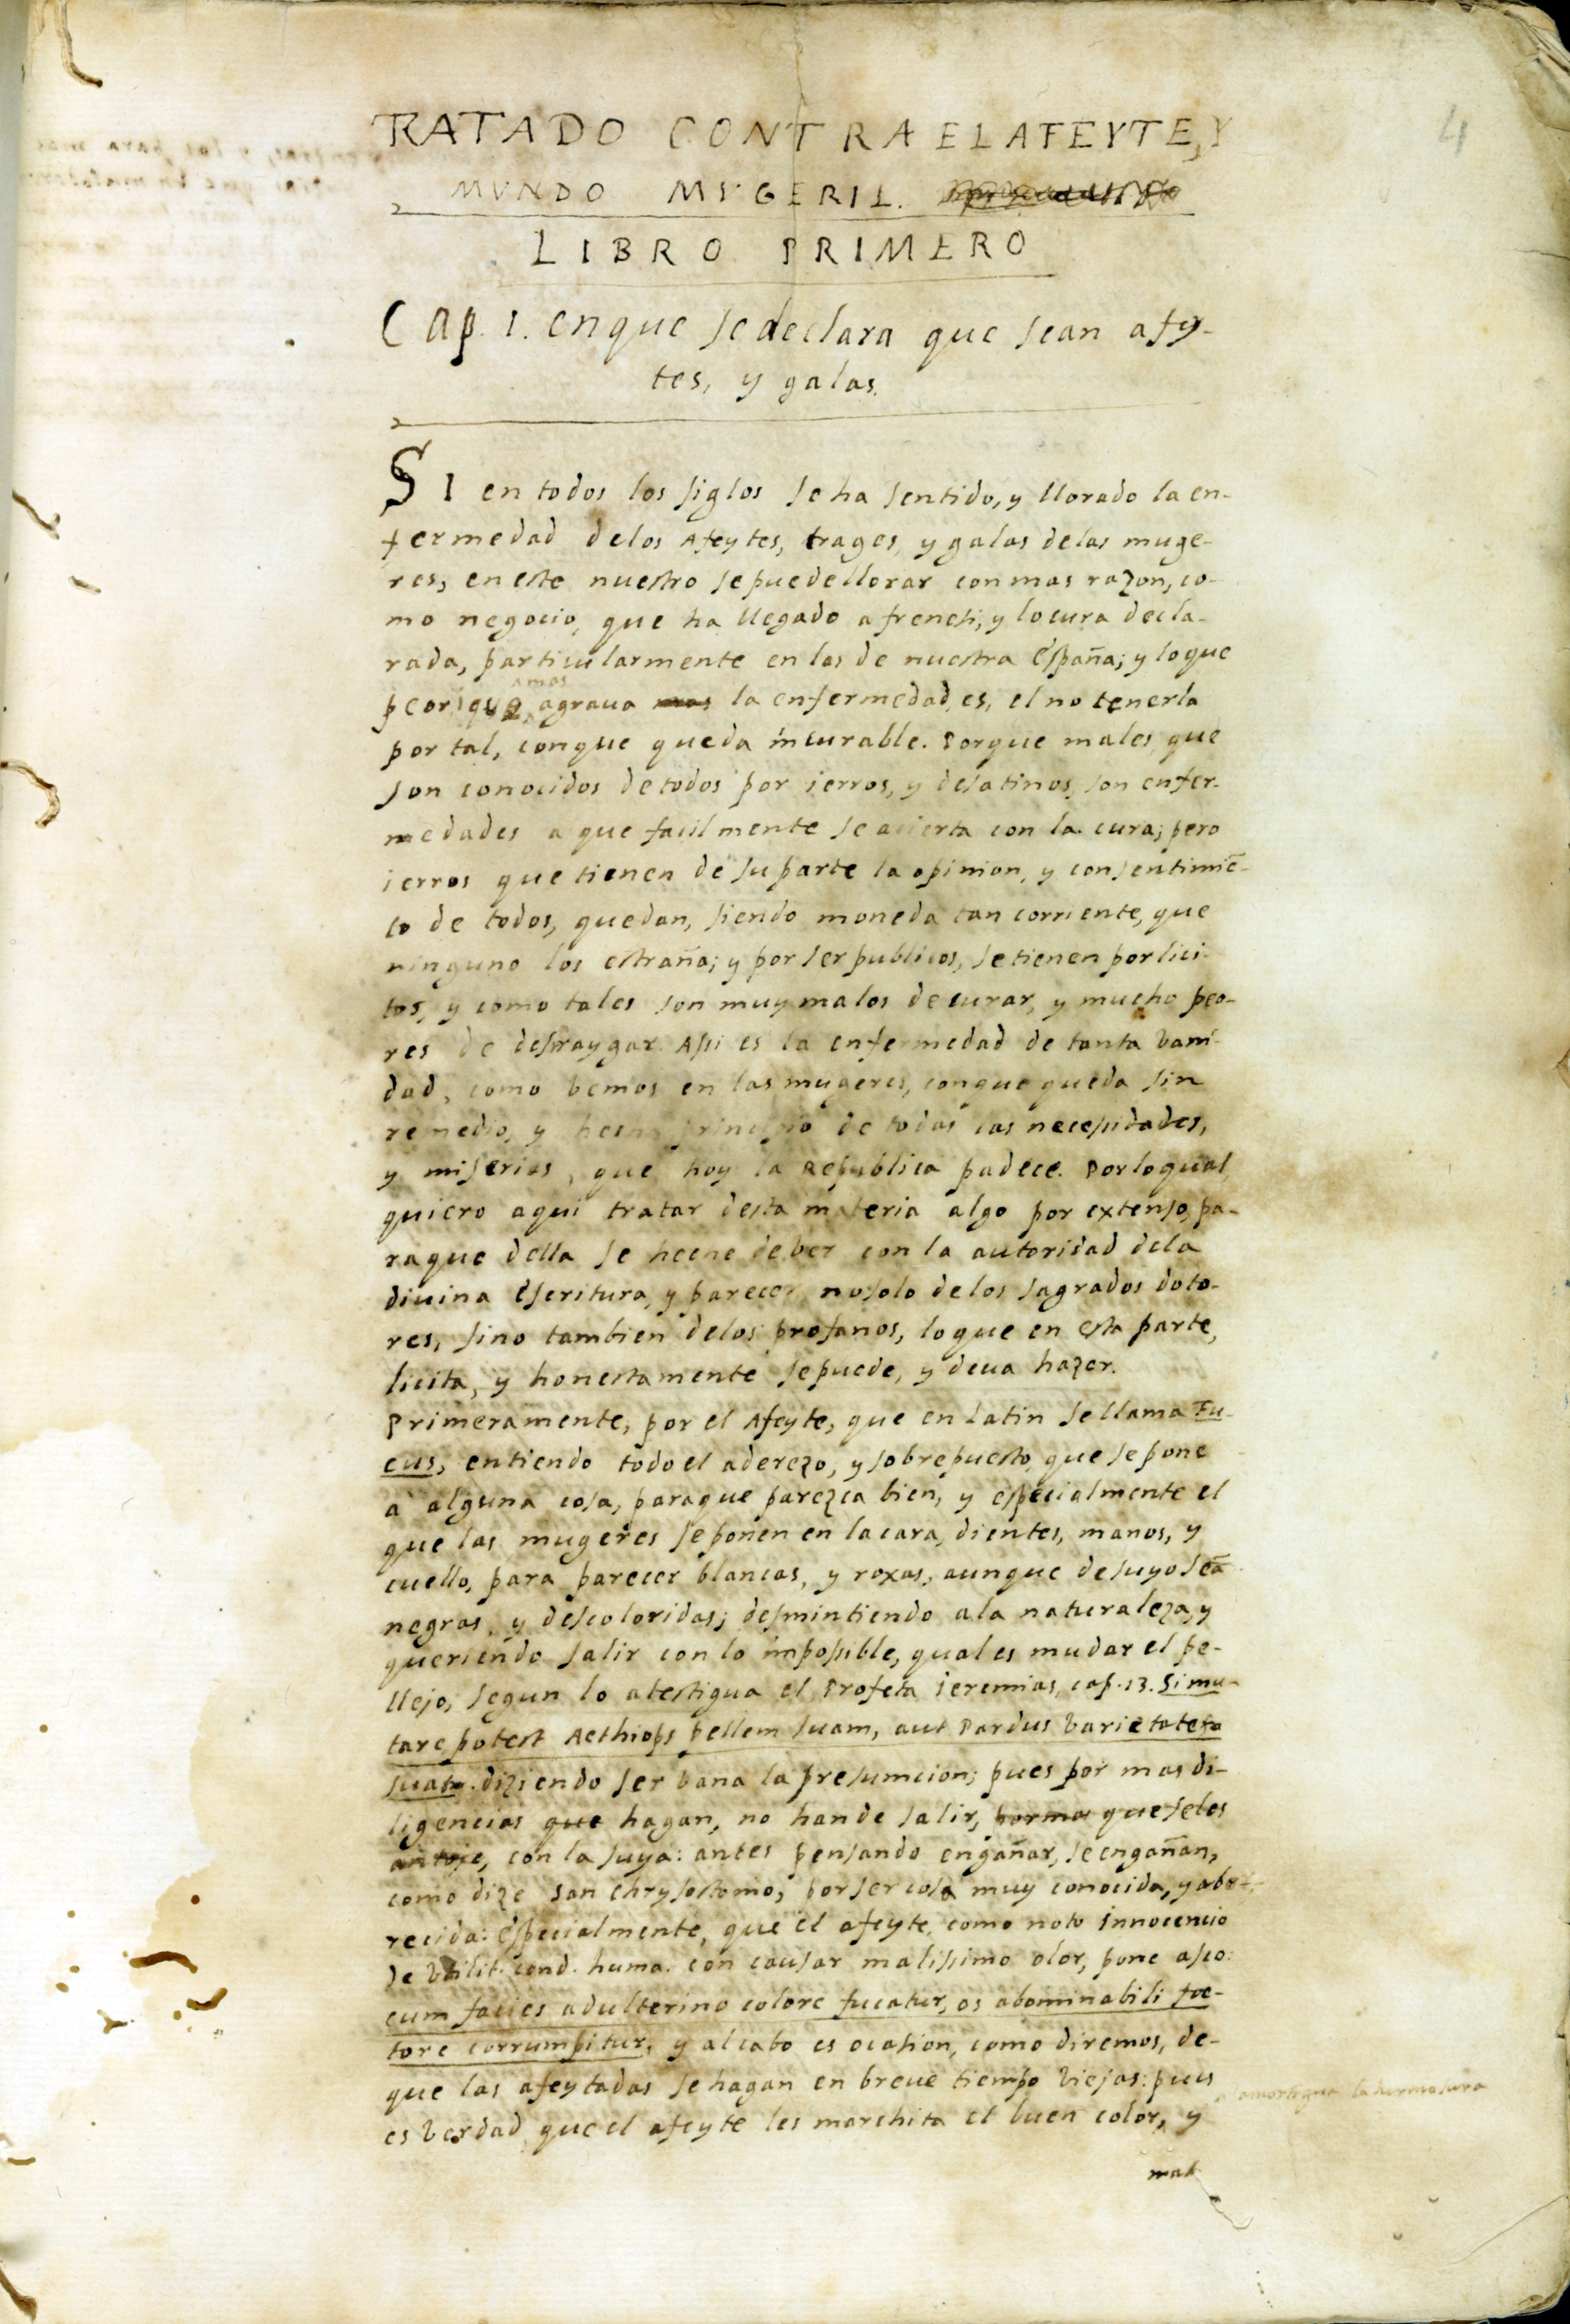 4
TRATADO CONTRA EL AFEYTE, Y
MVNDO MVGERIL.
LIBRO PRIMERO
Cap. 1. en que se declara que sean afey-
tes, y galas.
SI en todos los siglos se ha sentido, y llorado la en-
fermedad de los Afeytes, trages, y galas de las muge-
res, en este nuestro se puede llorar con mas razon, co-
mo negocio, que ha llegado a frenesi, y locura decla-
rada, particularmente en las de nuestra España; y lo que
peor, i que mas agraua mas la enfermedad, es, el no tenerla
por tal, con que queda incurable. Porque males, que
son conocidos de todos por ierros, y desatinos, son enfer-
medades a que facilmente se acierta con la cura; pero
ierros que tienen de su parte la opinion, y consentimiē-
to de todos, quedan, siendo moneda tan corriente, que
ninguno los estraña; y por ser publicos, se tienen por lici-
tos, y como tales son muy malos de curar, y mucho peo-
res de desrraygar. Assi es la enfermedad de tanta vani-
dad, como vemos en las mugeres, con que queda sin
remedio, y hecha principio de todas las necessidades,
y miserias, que hoy la Republica padece. Por lo qual
quiero aqui tratar desta materia algo por extenso, pa-
raque della se heche de ver con la autoridad dela
diuina Escritura, y parecer no solo de los sagrados doto-
res, sino tambien delos profanos, lo que en esta parte,
licita, y honestamente se puede, y deua hazer.
Primeramente, por el Afeyte, que en Latin se llama Fu-
cus, entiendo todo el aderezo, y sobrepuesto, que se pone
a alguna cosa, paraque parezca bien, y especialmente el
que las mugeres se ponen en la cara, dientes, manos, y
cuello, para parecer blancas, y roxas, aunque de suyo seā
negras, y descoloridas; desmintiendo a la naturaleza, y
queriendo salir con lo impossible, qual es mudar el pe-
llejo, segun lo atestigua el Profeta Ieremias, cap. 13. Si mu-
tare potest Aethiops pellem suam, aut Pardus varietates
suas. diziendo ser vana la presumcion; pues por mas di-
ligencias que hagan, no han de salir, por mas que se les
antoje, con la suya: antes pensando engañar, se engañan,
como dize San Chrysostomo, por ser cosa muy conocida, y abor-
recida: Especialmente, que el afeyte, como noto Innocencio
de Vtilit. cond. huma. con causar malissimo olor, pone asco:
cum facies adulterino colore fucatur, os abominabili foe-
tore corrumpitur, y al cabo es ocasion, como diremos, de-
que las afeytadas se hagan en breue tiempo viejas: pues
es verdad, que el afeyte les marchita el buen color, y
amortigua la hermosura
mal